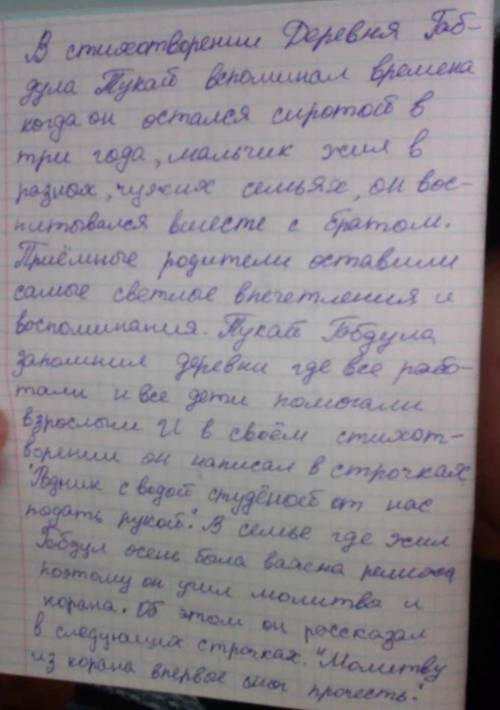 В стихотворении Деревня Габ-
дула Тукай вспоминал времена
когда он остался сиротой в
три года, мальчик жил в
разнах, чужих семьях, он вос-
питывался вместе с братом.
Приёмные родители оставили
самые светлые впечетления и
воспоминания. Тукай Габдула
запомнил деревни где все рабо-
тали и все дети помогали
взрослым И в своём стихот-
ворении он написал в строчках
"Родник с водой студёной от нас
подать рукой". В семье где жил
Габдул очень была важна религия
поэтому он учил молитва и
корана. Об этом он россказал
в следующих строчках. "Молитву
из корана впервые смог прочесть."